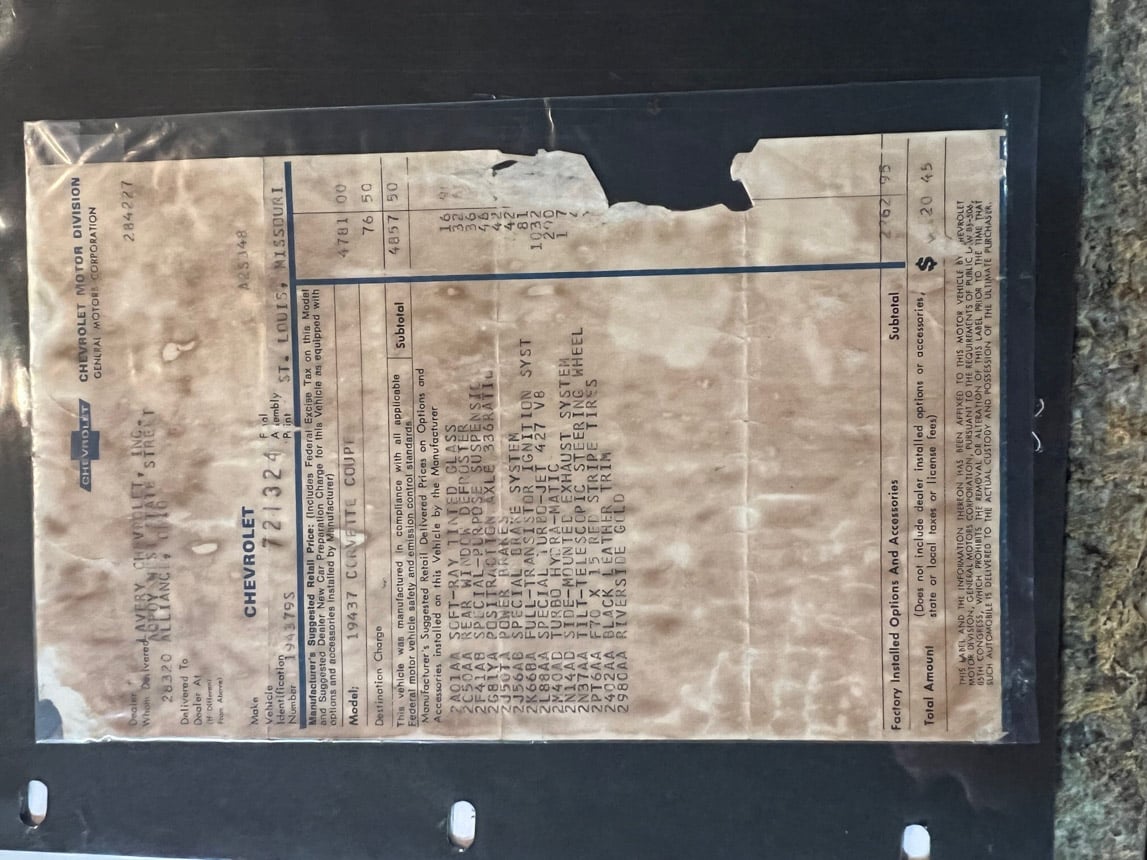 CHEVROLET
CHEVROLET MOTOR DIVISION
GENERAL MOTORS CORPORATION
284227
Dealer
Whom Delivered
ALLIANCE, STATE STREET
28320
Delivered To
Dealer At
(If Different
From Above)
Make CHEVROLET
Vehicle
Identification
Number 194379S 721324
Final
Assembly
Point ST. LOUIS, MISSOURI
Manufacturer's Suggested Retail Price: (Includes Federal Excise Tax on this Model
and Suggested Dealer New Car Preparation Charge for this Vehicle as equipped with
options and accessories Installed by Manufacturer)
Model: 19437 CORVETTE COUPE 4781 00
Destination Charge 76 50
This vehicle was manufactured in compliance with all applicable
Federal motor vehicle safety and emission control standards
Subtotal 4857 50
Manufacturer's Suggested Retail Delivered Prices on Options and
Accessories installed on this Vehicle by the Manufacturer
2A01AA SOFT-RAY TINTED GLASS 16
2C50AA REAR WINDOW DEFROSTER 32
2F41YB SPECIAL-PURPOSE SUSPENSIO 36
2G81YA POSITRACTION AXLE 336RATIO 46
POWER BRAKES 42
SPECIAL BRAKE SYSTEM
2K66BA FUL-TRANSISTOR IGNITION SYST 81
2L88AA SPECIAL TURBO-JET 427 V8 1032
2M40AD TURBO HYDRA-MATIC 290
2N14AD SIDE-MOUNTED EXHAUST SYSTEM
2N37AA TILT-TELESCOPIC STEERING WHEEL
2PT6AA F70 X 15 RED STRIPE TIRES
2402AA BLACK LEATHER TRIM
2980AA RIVERSIDE GOLD
Factory Installed Options And Accessories Subtotal 95
Total Amount (Does not include dealer installed options or accessories,
state or local taxes or license fees)
$ 20 45
THIS LABEL AND THE INFORMATION THEREON HAS BEEN AFFIXED TO THIS MOTOR VEHICLE BY CHEVROLET
MOTOR DIVISION, GENERAL MOTORS CORPORATION, PURSUANT TO THE REQUIREMENTS OF PUBLIC LAW 85-506,
85TH CONGRESS, WHICH PROHIBITS THE REMOVAL OR ALTERATION OF THIS LABEL PRIOR TO THE TIME THAT
SUCH AUTOMOBILE IS DELIVERED TO THE ACTUAL CUSTODY AND POSSESSION OF THE ULTIMATE PURCHASER.